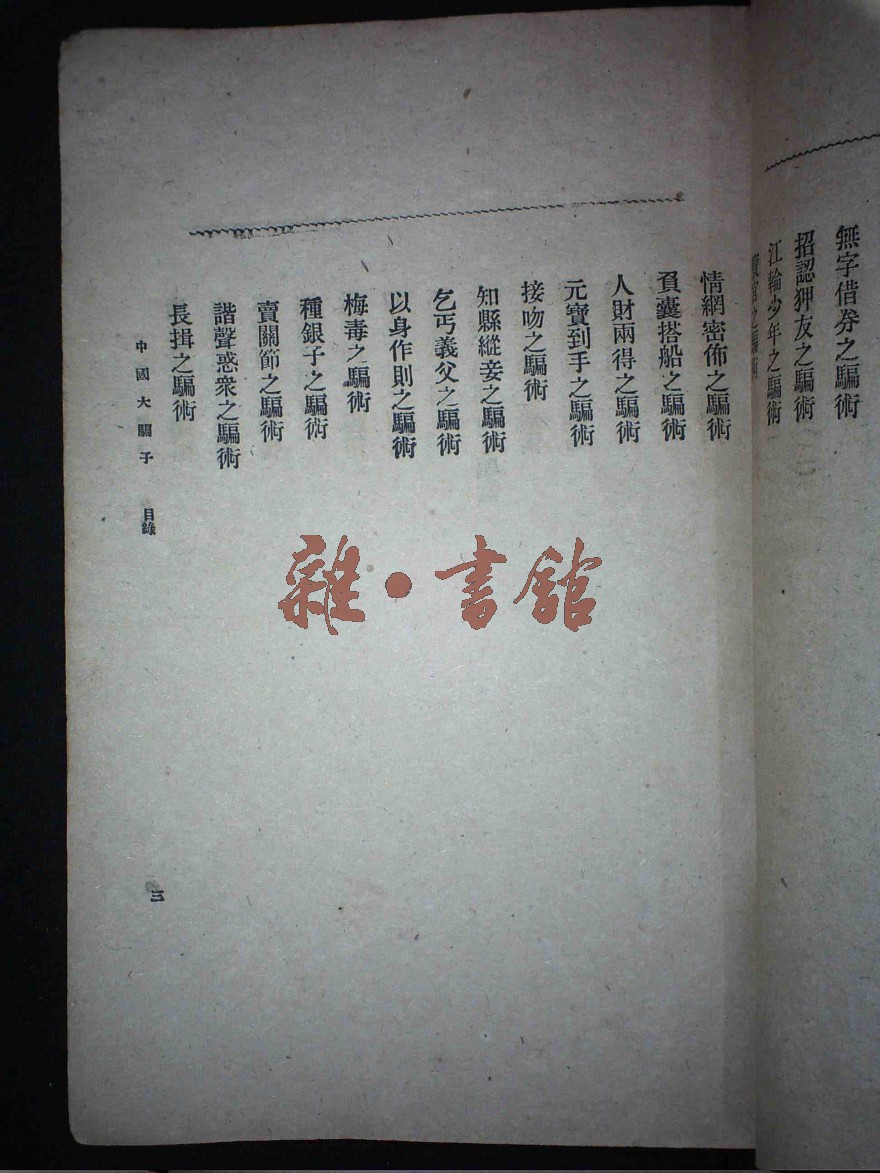 無字借券之騙術
招認狎友之騙術
江輪少年之騙術
情網密佈之騙術
負囊搭船之騙術
人財兩得之騙術
元寶到手之騙術
接吻之騙術
知縣縱妾之騙術
乞丐義父之騙術
以身作則之騙術
梅毒之騙術
種銀子之騙術
賣關節之騙術
諧聲惑衆之騙術
長揖之騙術
中國大騙子 目錄
三
雜·書館